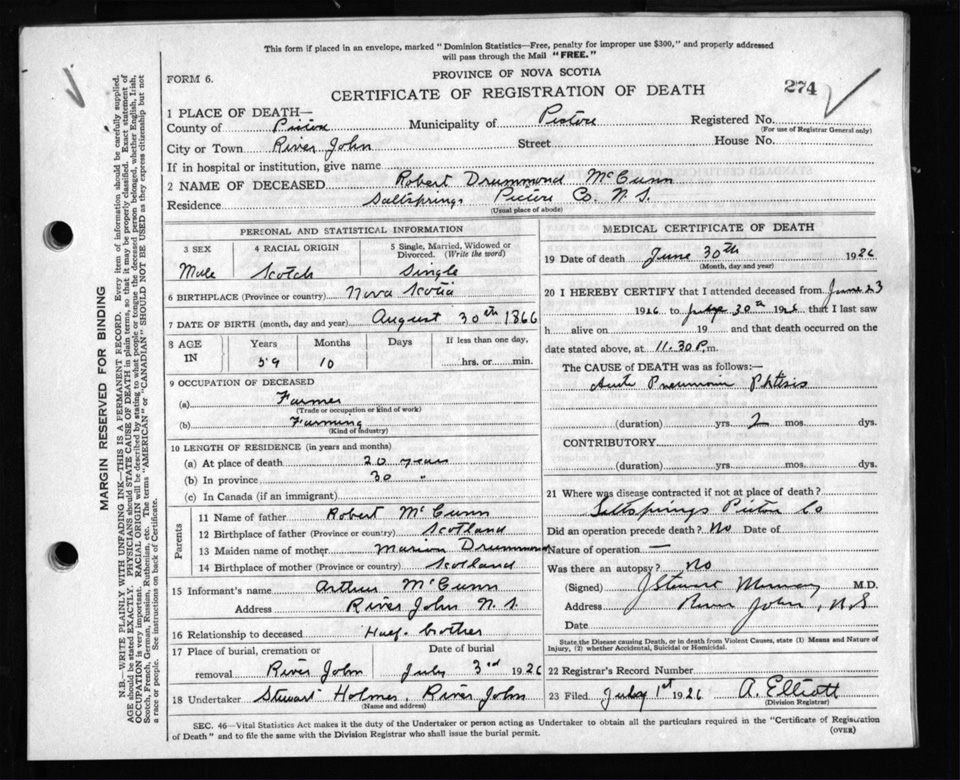 This form if placed in an envelope, marked "Dominion Statistics—Free, penalty for improper use $300," and properly addressed
will pass through the Mail "FREE."
FORM 6.
PROVINCE OF NOVA SCOTIA
CERTIFICATE OF REGISTRATION OF DEATH
274
1 PLACE OF DEATH—
County of Pictou Municipality of Pictou Registered No.
(For use of Registrar General only)
City or Town River John Street House No.
If in hospital or institution, give name
2 NAME OF DECEASED Robert Drummond McCunn
Residence Saltsprings Pictou Co. N.S.
(Usual place of abode)
PERSONAL AND STATISTICAL INFORMATION
3 SEX 4 RACIAL ORIGIN 5 Single, Married, Widowed or Divorced. (Write the word)
Male Scotch Single
6 BIRTHPLACE (Province or country) Nova Scotia
7 DATE OF BIRTH (month, day and year) August 30th 1866
8 AGE IN Years Months Days If less than one day,
59 10 hrs. or min.
9 OCCUPATION OF DECEASED
(a) Farmer
(Trade or occupation or kind of work)
(b) Farming
(Kind of industry)
10 LENGTH OF RESIDENCE (in years and months)
(a) At place of death 20 years
(b) In province 30 "
(c) In Canada (if an immigrant)
Parents
11 Name of father Robert McCunn
12 Birthplace of father (Province or country) Scotland
13 Maiden name of mother Marion Drummond
14 Birthplace of mother (Province or country) Scotland
15 Informant's name Arthur McCunn
Address River John N.S.
16 Relationship to deceased Half brother
17 Place of burial, cremation or removal River John Date of burial July 3rd 1926
18 Undertaker Stewart Holmes, River John
(Name and address)
MEDICAL CERTIFICATE OF DEATH
19 Date of death June 30th 1926
(Month, day and year)
20 I HEREBY CERTIFY that I attended deceased from June 23
1926 to 30th 1926 that I last saw
h alive on 19 and that death occurred on the
date stated above, at 11.30 P.m.
The CAUSE of DEATH was as follows:—
Acute Pneumonic Phtisis
(duration) yrs. 2 mos. dys.
CONTRIBUTORY
(duration) yrs. mos. dys.
21 Where was disease contracted if not at place of death?
Saltsprings Pictou Co
Did an operation precede death? No Date of
Nature of operation —
Was there an autopsy? No
(Signed) J Stewart Murray M.D.
Address River John, N.S
Date
State the Disease causing Death, or in death from Violent Causes, state (1) Means and Nature of
Injury, (2) whether Accidental, Suicidal or Homicidal.
22 Registrar's Record Number
23 Filed July 1st 1926 A. Elliott
(Division Registrar)
SEC. 46—Vital Statistics Act makes it the duty of the Undertaker or person acting as Undertaker to obtain all the particulars required in the "Certificate of Registration
of Death" and to file the same with the Division Registrar who shall issue the burial permit.
(OVER)
MARGIN RESERVED FOR BINDING
N.B.—WRITE PLAINLY WITH UNFADING INK—THIS IS A PERMANENT RECORD. Every item of information should be carefully supplied.
AGE should be stated EXACTLY. PHYSICIANS should STATE CAUSE OF DEATH in plain terms, so that it may be properly classified. Exact statement of
OCCUPATION is very important. RACIAL ORIGIN will be described by stating to what people or tongue the deceased person belonged, whether English, Irish,
Scotch, French, German, Russian, Ruthenian, etc. The terms "AMERICAN" or "CANADIAN" SHOULD NOT BE USED as they express citizenship but not
a race or people. See instructions on back of Certificate.